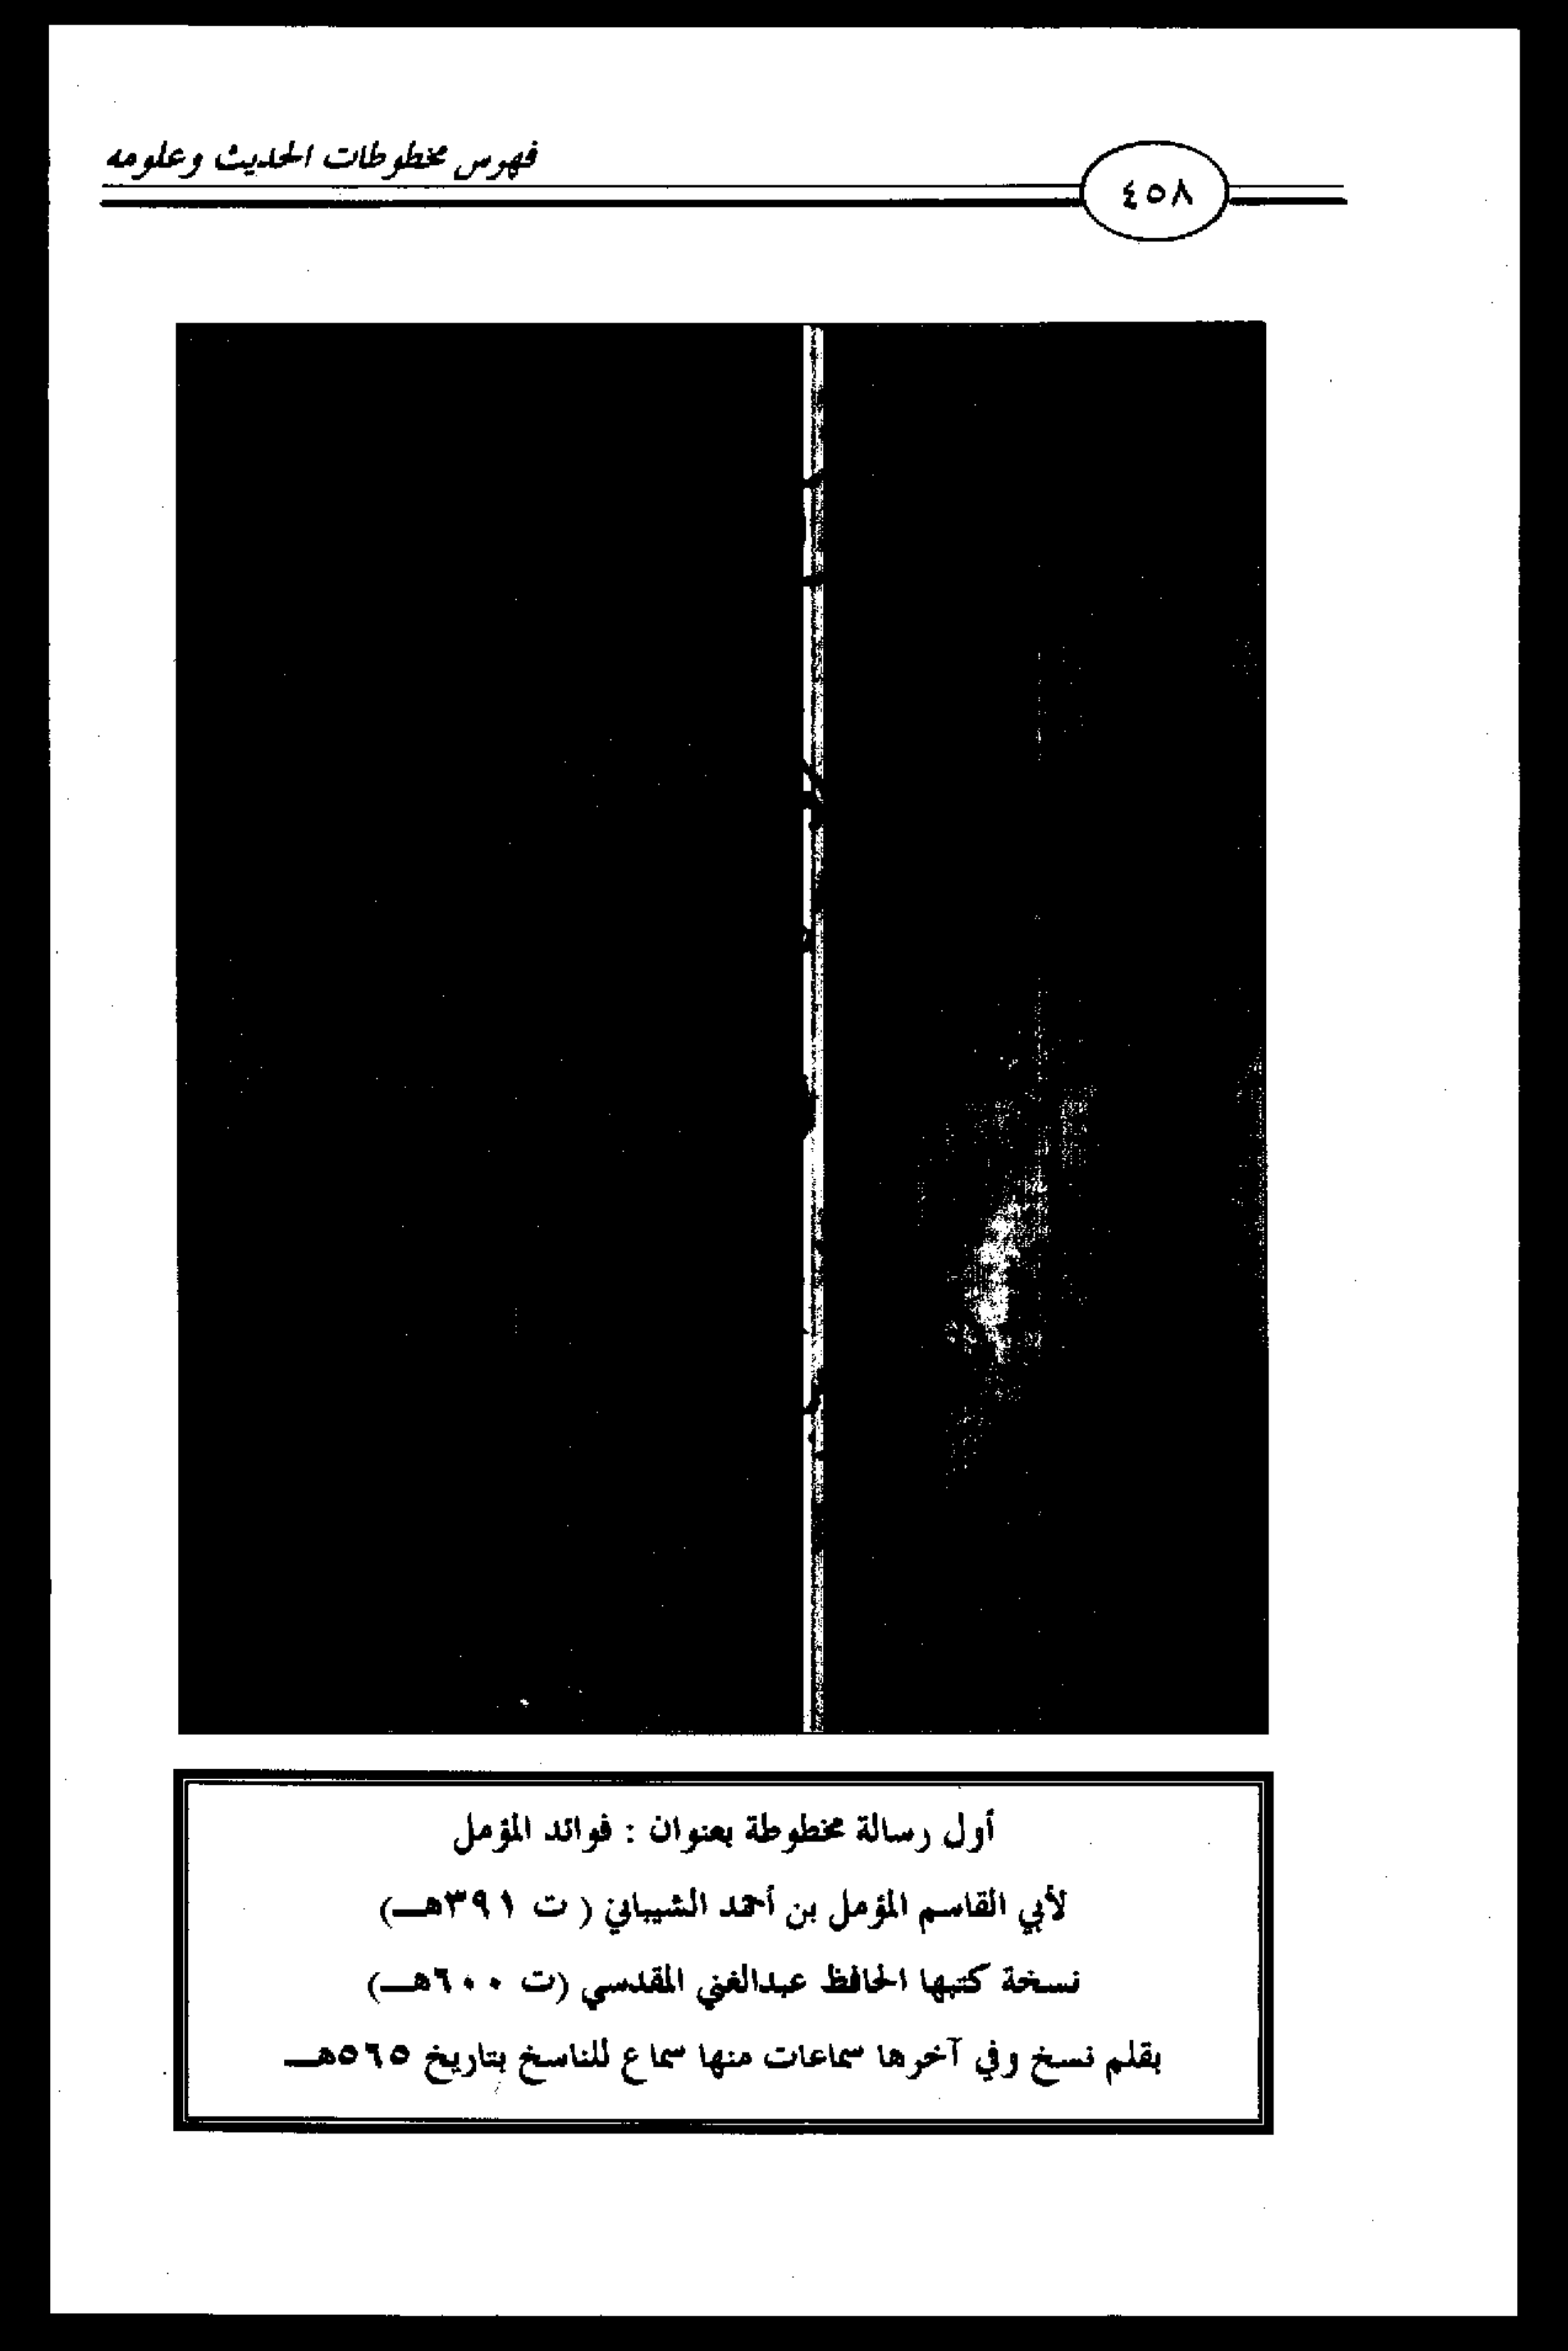 فهرس مخطوطات الحديث وعلومه
٤٥٨
أول رسالة مخطوطة بعنوان : فوائد المؤمل
لأبي القاسم المؤمل بن أحمد الشيباني ( ت ٣٩١هـ)
نسخة كتبها الحافظ عبدالغني المقدسي (ت ٦٠٠هـ)
بقلم نسخ وفي آخرها سماعات منها سماع للناسخ بتاريخ ٥٦٥هـ